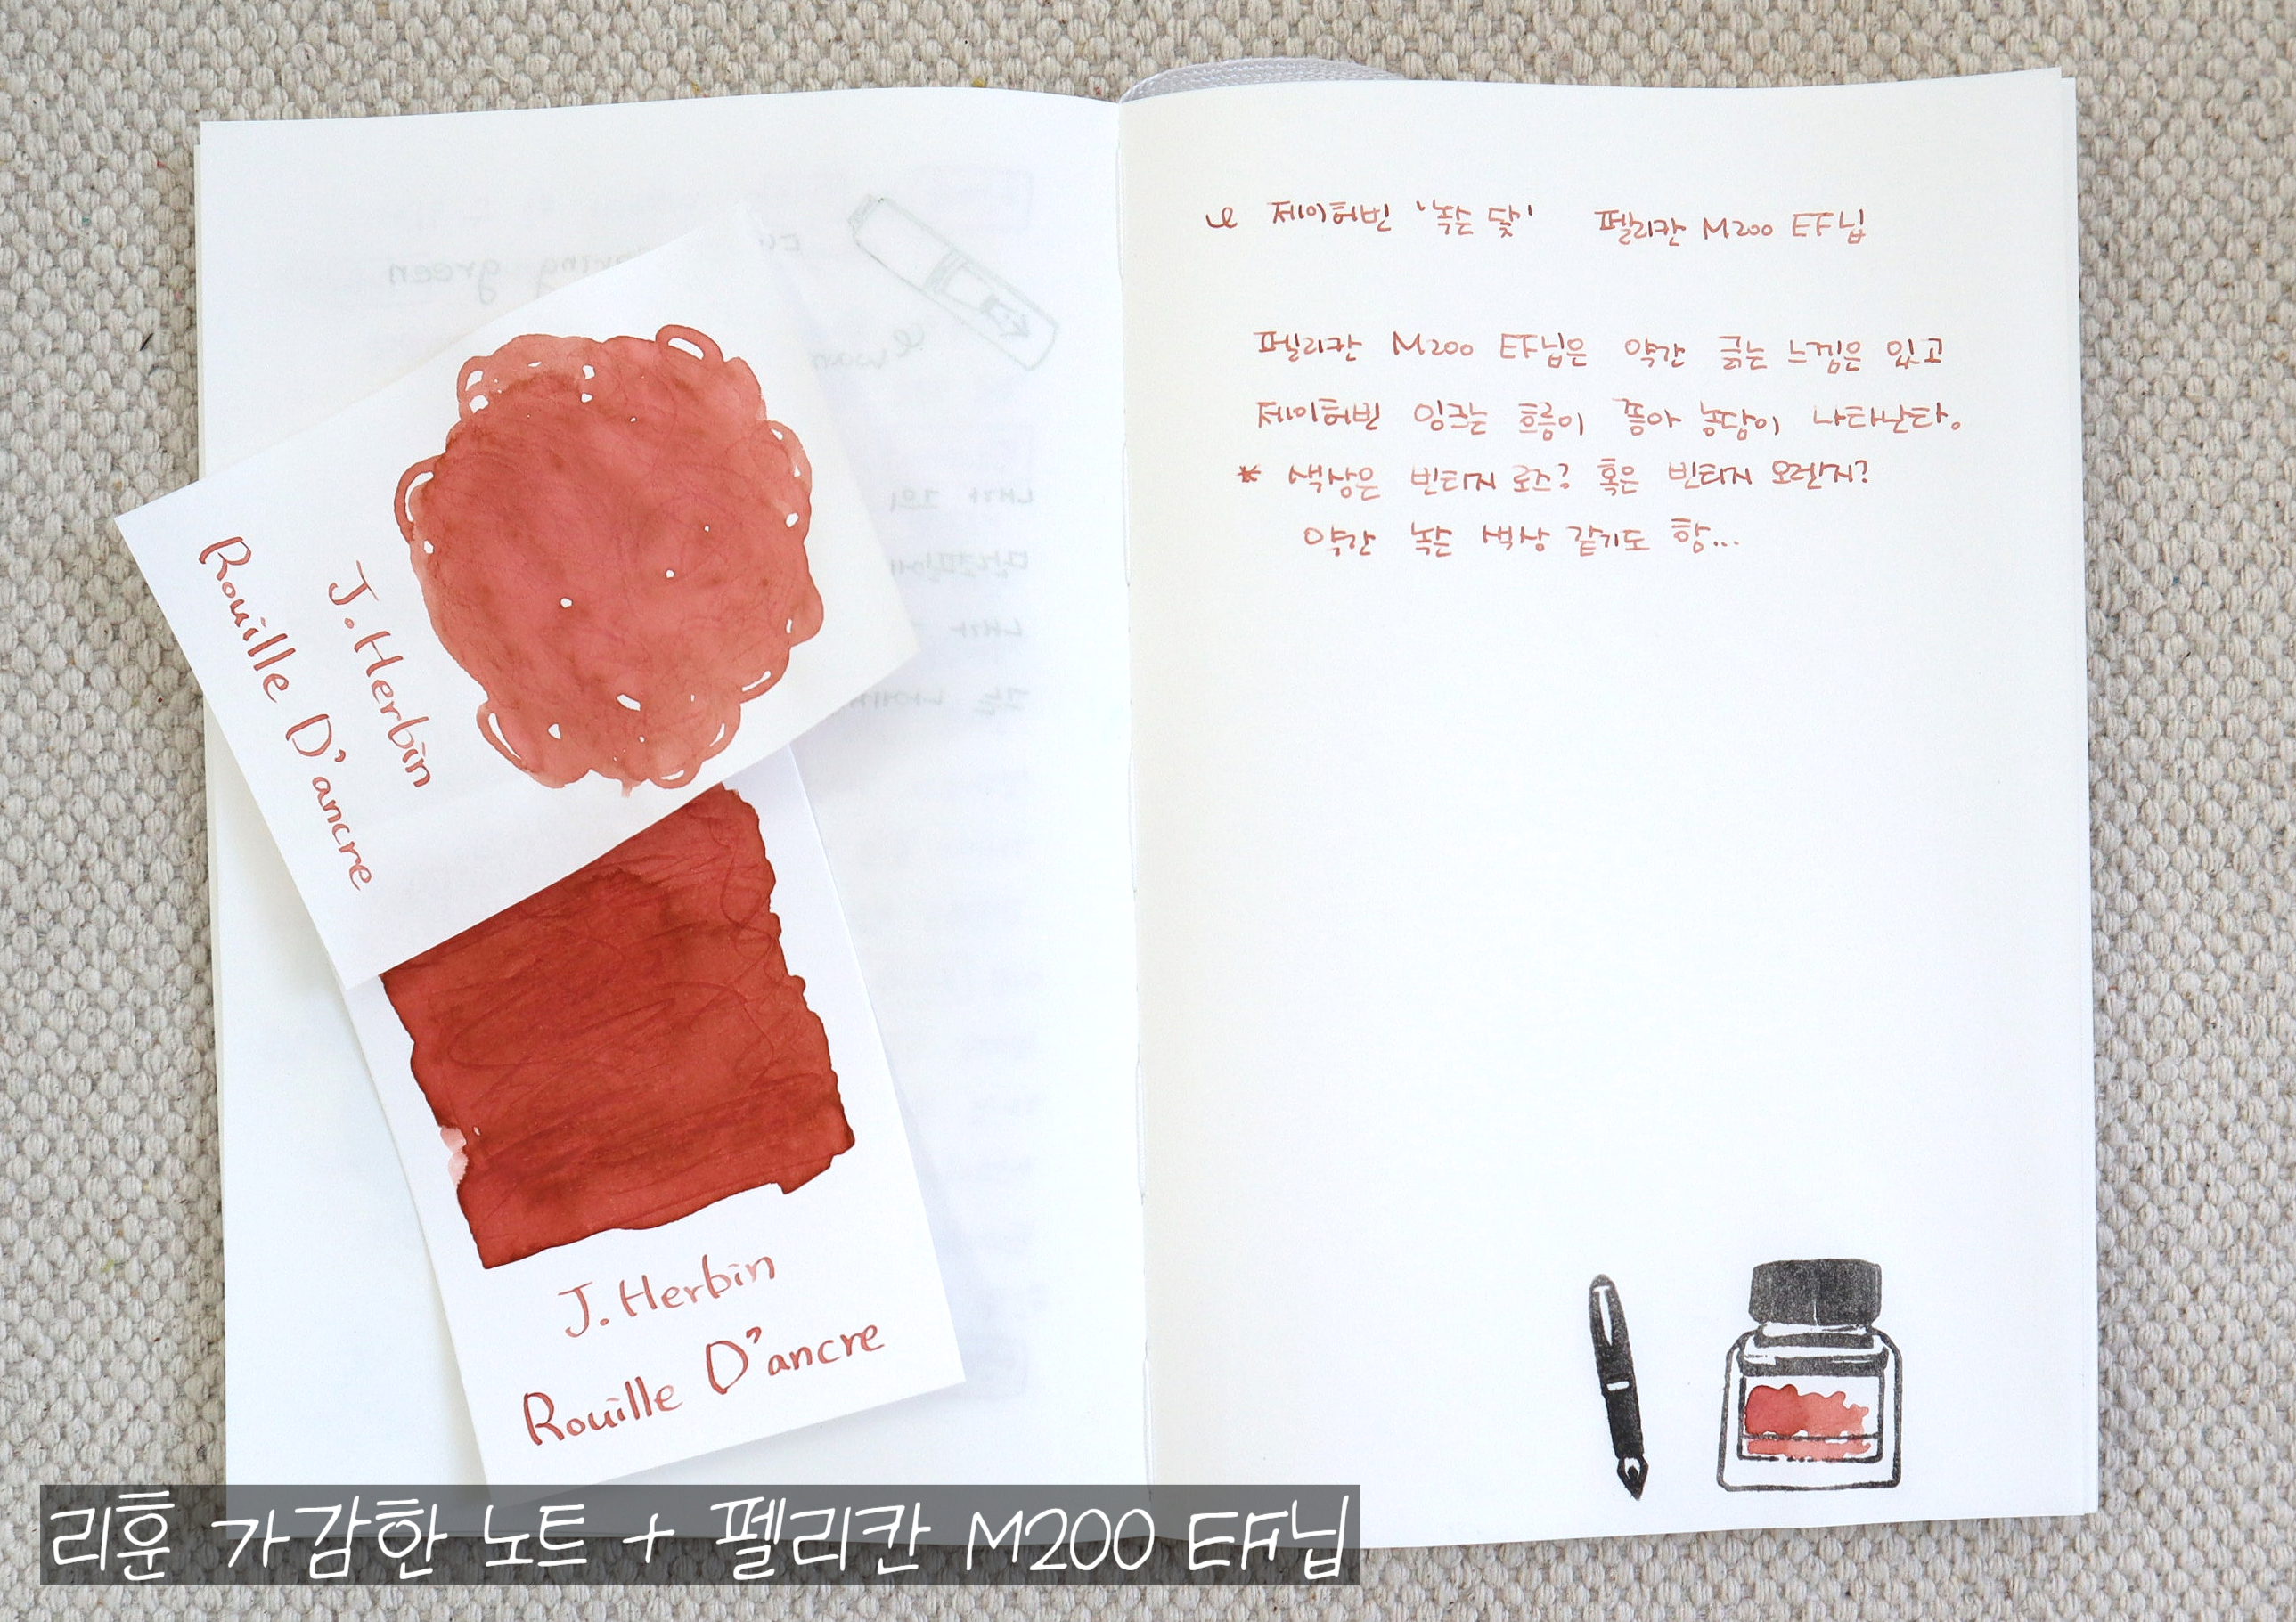 J. Herbin
Rouille D'ancre
J. Herbin
Rouille D'ancre
제이허빈 '녹슨 닻' 펠리칸 M200 EF닙
펠리칸 M200 EF닙은 약간 굵는 느낌은 있고
제이허빈 잉크는 흐름이 좋아 농담이 나타난다.
* 색상은 빈티지 로즈? 혹은 빈티지 오렌지?
약간 녹슨 색상 같기도 함...
리훈 가감한 노트 + 펠리칸 M200 EF닙